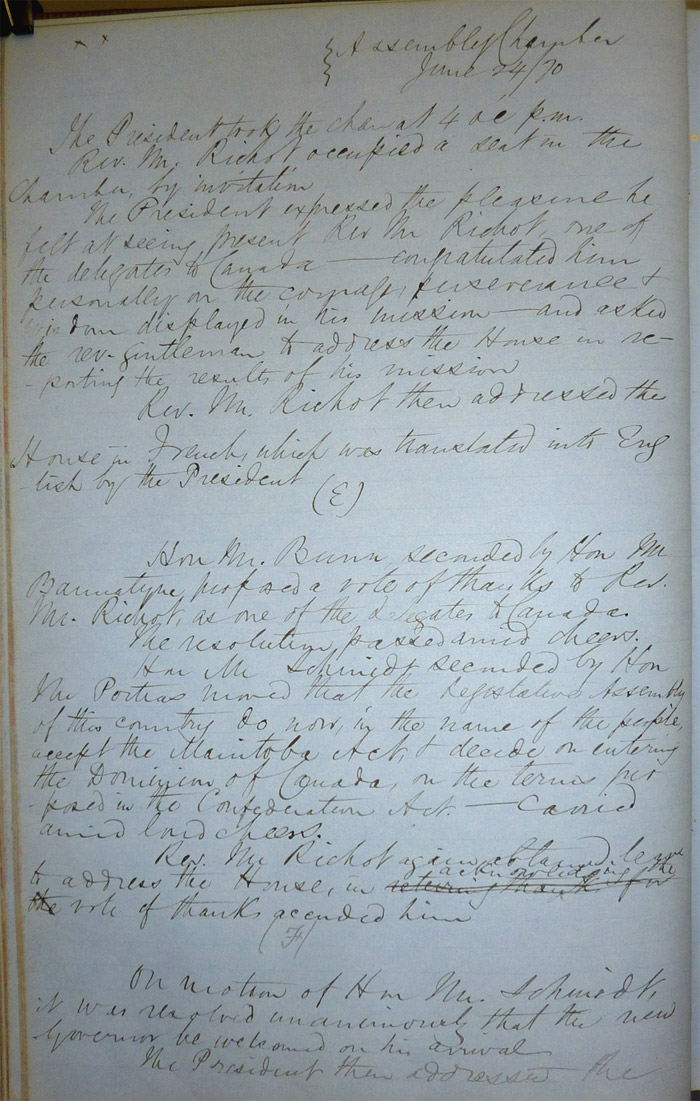 x x
Assembly Chamber
June 24/70
The President took the chair at 4 oc p.m.
Rev. Mr. Richot occupied a seat in the
Chamber, by invitation
The President expressed the pleasure he
felt at seeing present Rev Mr Richot, one of
the delegates to Canada — congratulated him
personally on the courage, perseverance &
wisdom displayed in his mission — and asked
the rev. gentleman to address the House in re-
-porting the results of his mission
Rev. Mr. Richot then addressed the
House in French, which was translated into Eng
lish by the President
(E)
Hon Mr. Bunn, seconded by Hon Mr
Bannatyne, proposed a vote of thanks to Rev.
Mr. Richot, as one of the delegates to Canada.
The resolution passed amid cheers.
Hon Mr Schmidt seconded by Hon
Mr Poitras moved that the Legislative Assembly
of this country do now, in the name of the people,
accept the Manitoba Act, & decide on entering
the Dominion of Canada, on the terms pro
posed in the Confederation Act. — Carried
amid loud cheers.
Rev. Mr Richot again obtained leave
acknowledging the
to address the House, in returning thanks for
the vote of thanks accorded him
(F)
On motion of Hon Mr. Schmidt,
it was resolved unanimously that the new
Governor be welcomed on his arrival
The President then addressed the